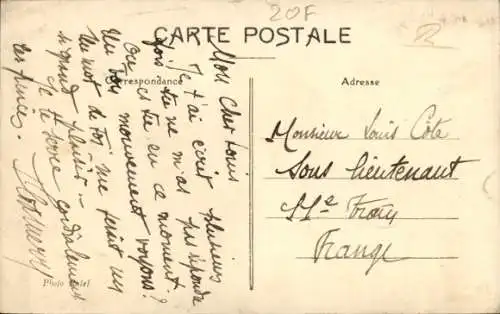 20F
CARTE POSTALE
Correspondance
Adresse
Mon cher Louis
Je t'ai écrit plusieurs
fois tu ne m'as pas répondu
Où es tu en ce moment.
Un bon mouvement voyons!
Un mot de toi me ferait un
si grand plaisir.
Je te serre cordialement
les pinces.
Monsieur Louis Côte
Sous lieutenant
France
Photo